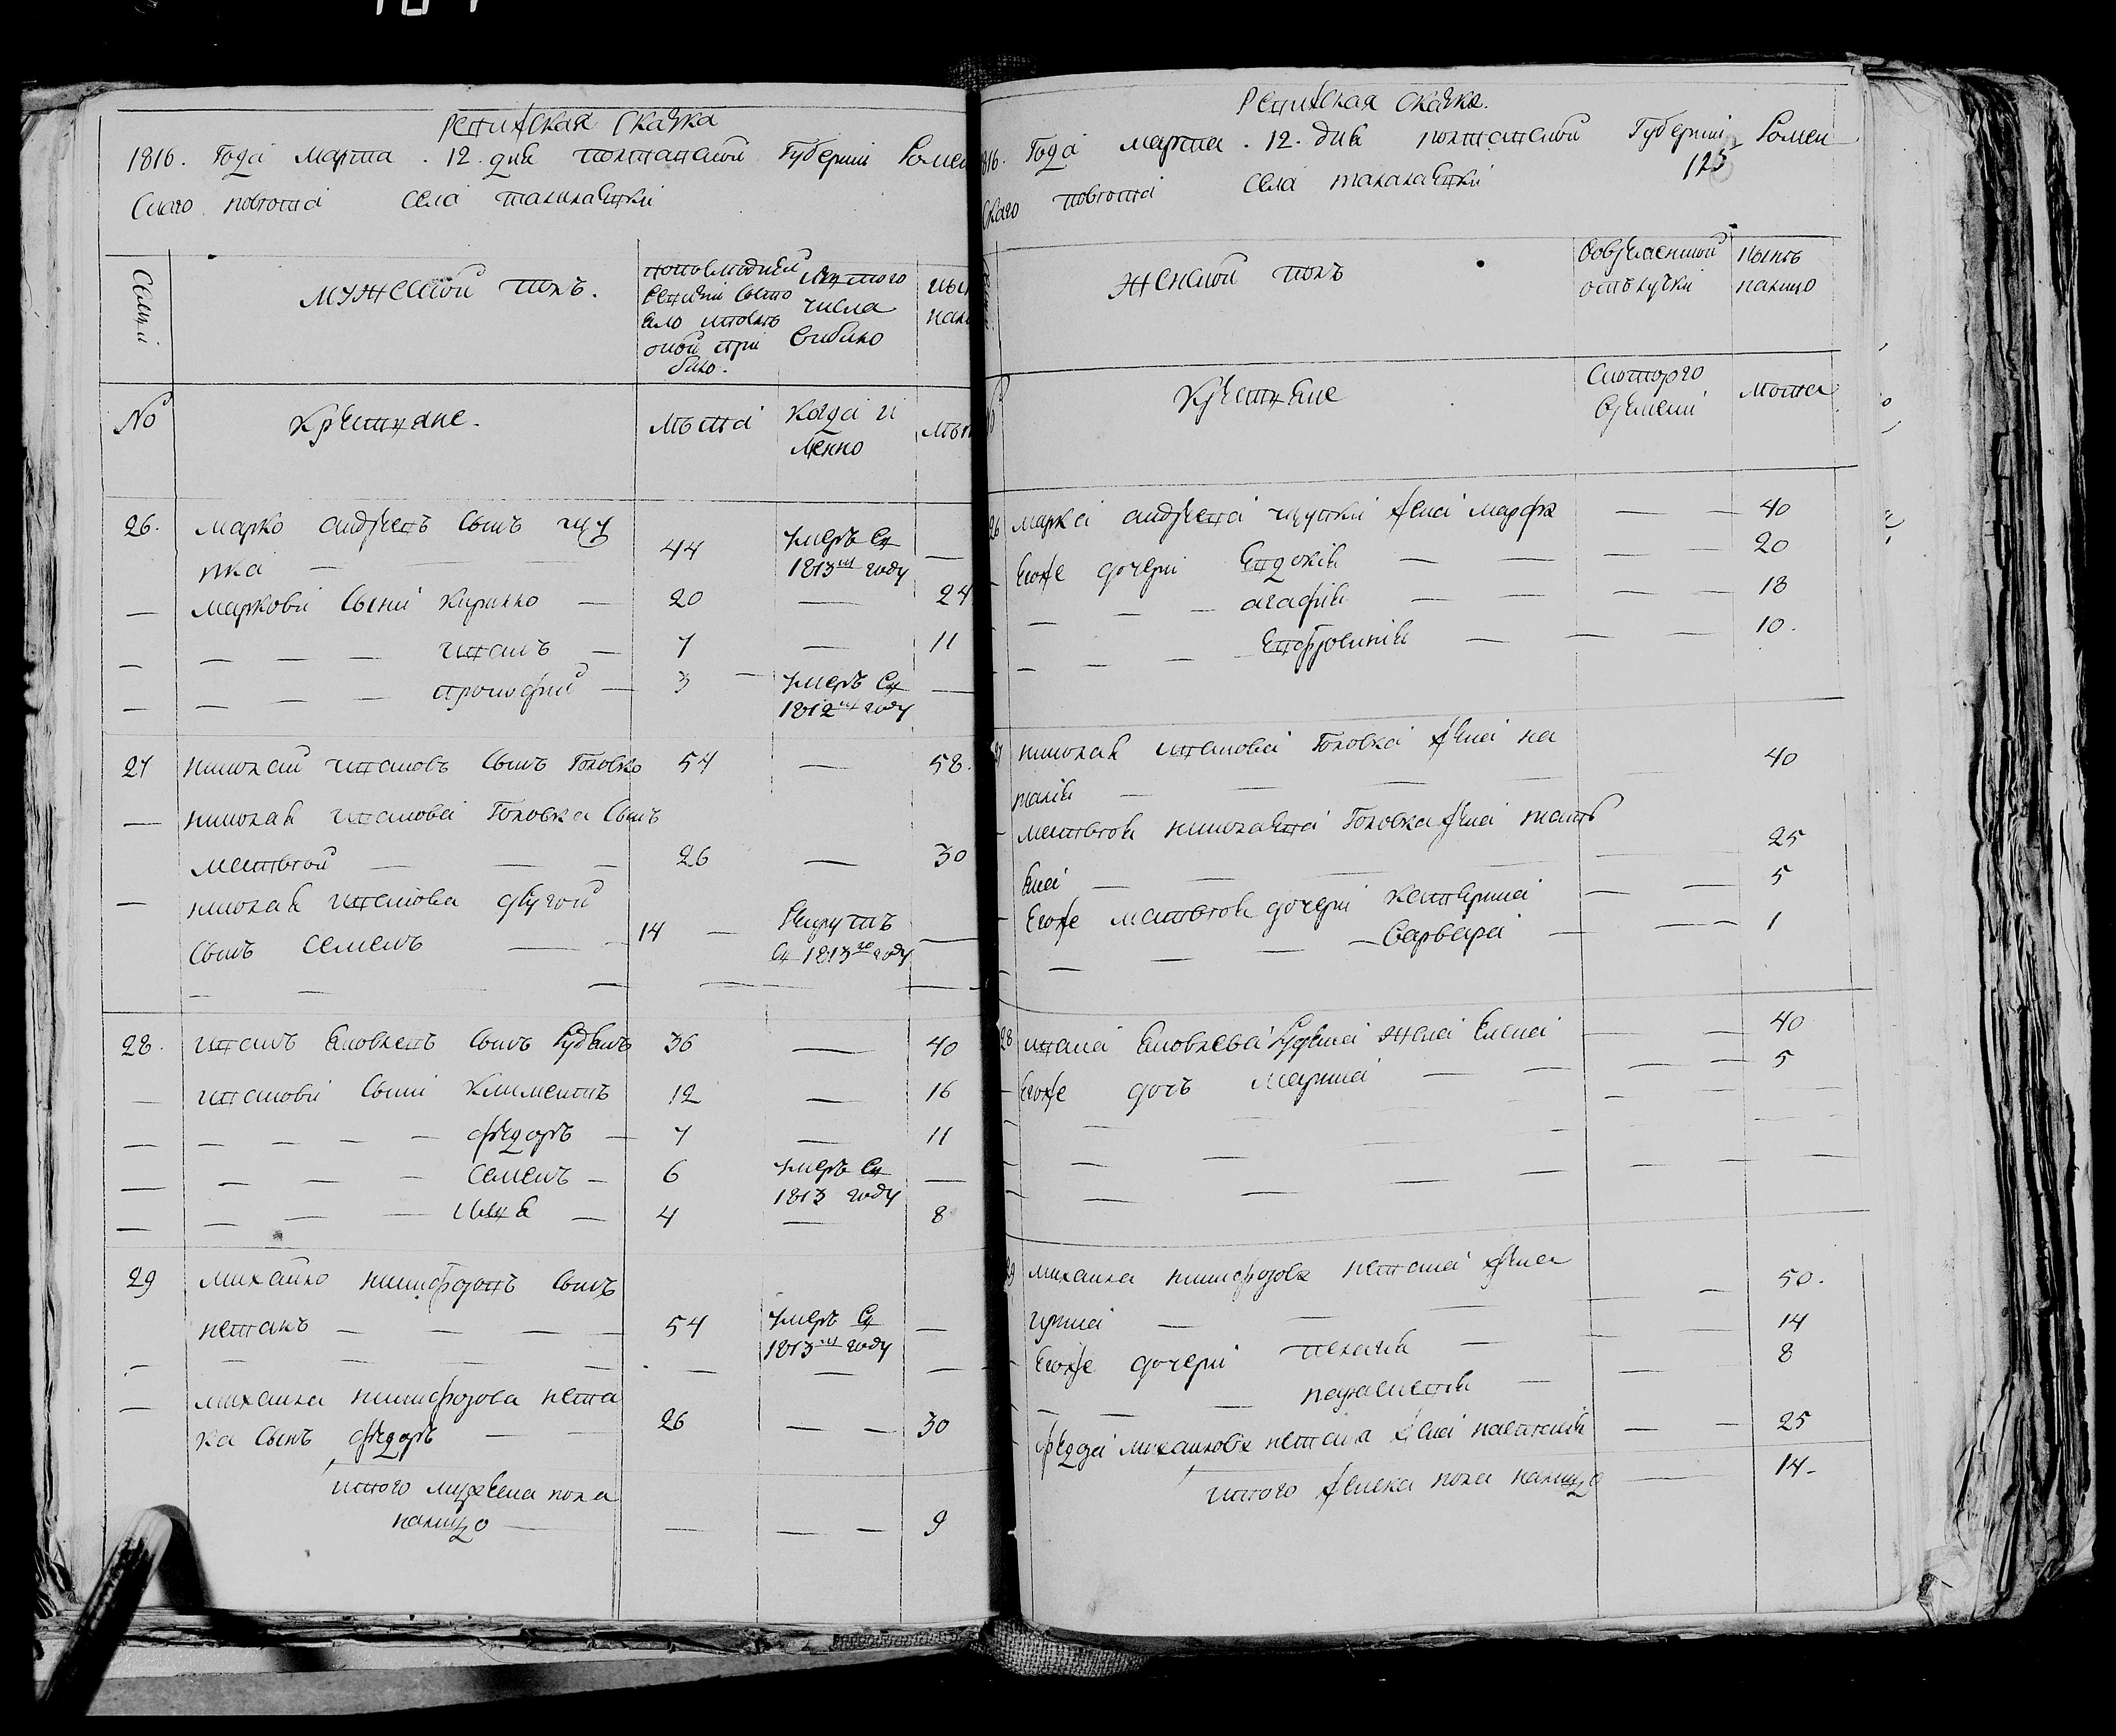 Ревижская сказка
1816. Года Марта . 12. дня полтавской Губерніи Ромен
скаго повѣта села талалаевки
Семьи
мужеской полъ.
по последней ревизіи состо яло и после оной при было.
Изъ того числа выбыло
ныне нали
No
Крестяне.
Лѣта
Когда и менно
Лѣт
26. Марко андреевъ сынъ щу
пка — 44 умеръ въ 1813м году —
— Марковы сыны кирилло — 20 — 24
— — — — иванъ — 7 — 11
— — — — прокофий — 3 — умеръ въ 1812м году —
27 николай ивановъ сынъ Головко 54 — 58.
— николая иванова Головка сынъ
матвѣй — — — 26 — 30
— николая иванова другой
сынъ семенъ — — 14 — Рекрутъ въ 1813го году —
28. иванъ яковлевъ сынъ Руденъ 36 — 40
— ивановы сыны климентъ 12 — 16
— — — — — федоръ — 7 — 11
— — — — — семенъ — 6 умеръ въ 1813 году —
— — — — — илья — 4 — 8
29 михайло никифоровъ сынъ
петакъ — — — — 54 умеръ въ 1813м году —
— михаила никифорова пета
ка сынъ федоръ — — 26 — — 30
итого мужеска пола
налицо — — — — 9
Ревижская сказка.
1816. Года марта . 12. дня полтавской Губерніи Ромен
125
скаго повѣта села талалаевки
женской полъ
Вовременной отълучки
нынѣ налицо
Крестяне
Скоторого времени
Лѣта
26 марка андреева щупки жена марфа — — 40
Егоже дочери Евдокія — — — — 20
— — — агафія — — — — 18
— — — Евфросинія — — — — 10.
27 николая иванова Головка жена на
талія — — — — 40
матвѣя николаева Головка жена татя
яна — — — 25
Егоже матвѣя дочери катерина — — 5
— — — — Варвара — — — 1
28 ивана яковлева Руденка жена Елена — — 40
Егоже дочь марина — — — — 5
29 михаила никифорова петака жена
ирина — — — — 50.
Егоже дочери пелагія — — — 14
— — — параскевія — — 8
федора михаилова петака жена настасія — — 25
итого женска пола налицо — 14.